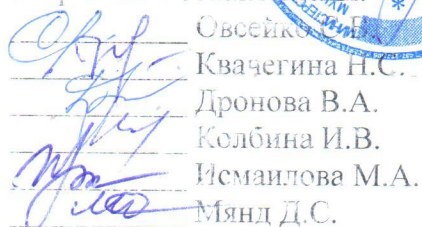 Овсейко
Квачегина Н.С.
Дронова В.А.
Колбина И.В.
Исмаилова М.А.
Мянд Д.С.